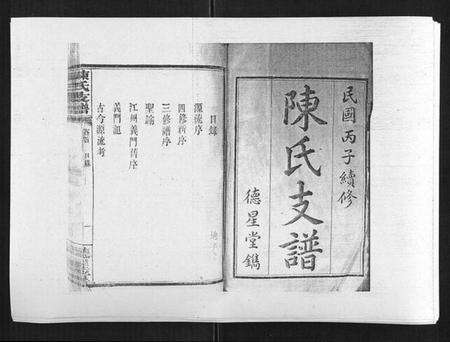 民國丙子續修
陳氏支譜
德星堂鐫
目錄
源流序
四修新序
三修譜序
聖諭
江州義門舊序
義門記
古今源流考
陳氏支譜